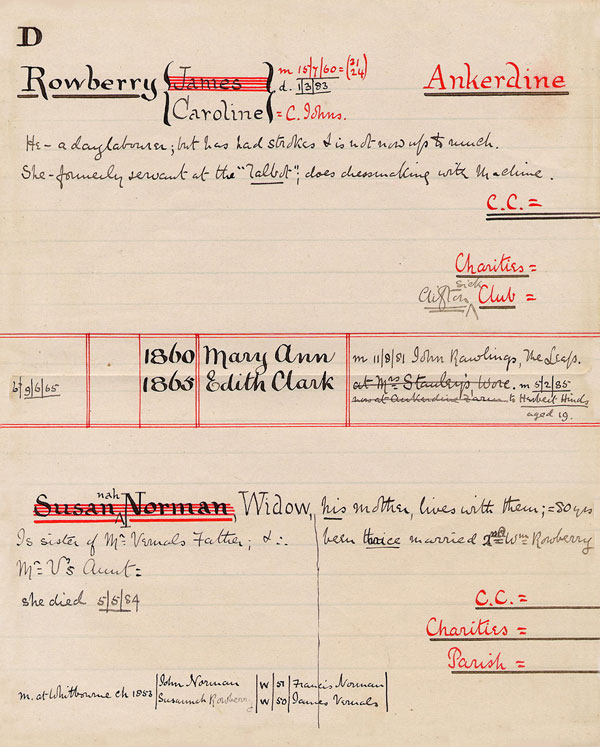 D
Rowberry { James } m 15/7/60 = (31 24) Ankerdine
d. 1/3/83
Caroline = C. Johns.
He - a daylabourer; but has had strokes & is not now up to much.
She - formerly servant at the "Talbot"; does dressmaking with Machine.
C.C. =
Charities =
Clifton sick Club =
1860 Mary Ann m 11/8/81 John Rawlings, The Leap.
bt 9/6/65 1865 Edith Clark at Mrs Stanley's Worc. m 5/2/85
now at Ankerdine Farm to Herbert Hinds
aged 19.
Susannah Norman, Widow, his mother, lives with them; = 80 yrs
Is sister of Mr Vernals Father; & ∴ been thrice married 2nd Wm Rowberry
Mr V's Aunt =
she died 5/5/84
C.C. =
Charities =
Parish =
John Norman W 51 Francis Norman
m. at Whitbourne ch 1853 Susannah Rowberry W 50 James Vernals